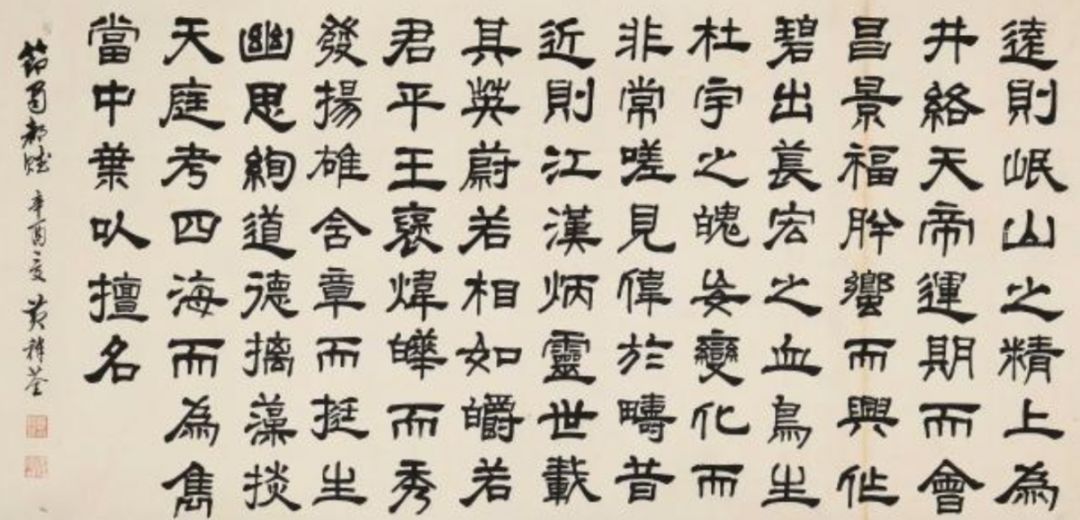 遠則岷山之精上為
井絡天帝運期而會
昌景福肸蠁而興作
碧出萇宏之血鳥生
杜宇之魄妄變化而
非常嗟見偉於疇昔
近則江漢炳靈世載
其英蔚若相如皭若
君平王褒煒曄而秀
發揚雄含章而挺生
幽思絢道德摛藻掞
天庭考四海而為雋
當中葉以擅名
節蜀都賦 辛酉夏 黃稚荃